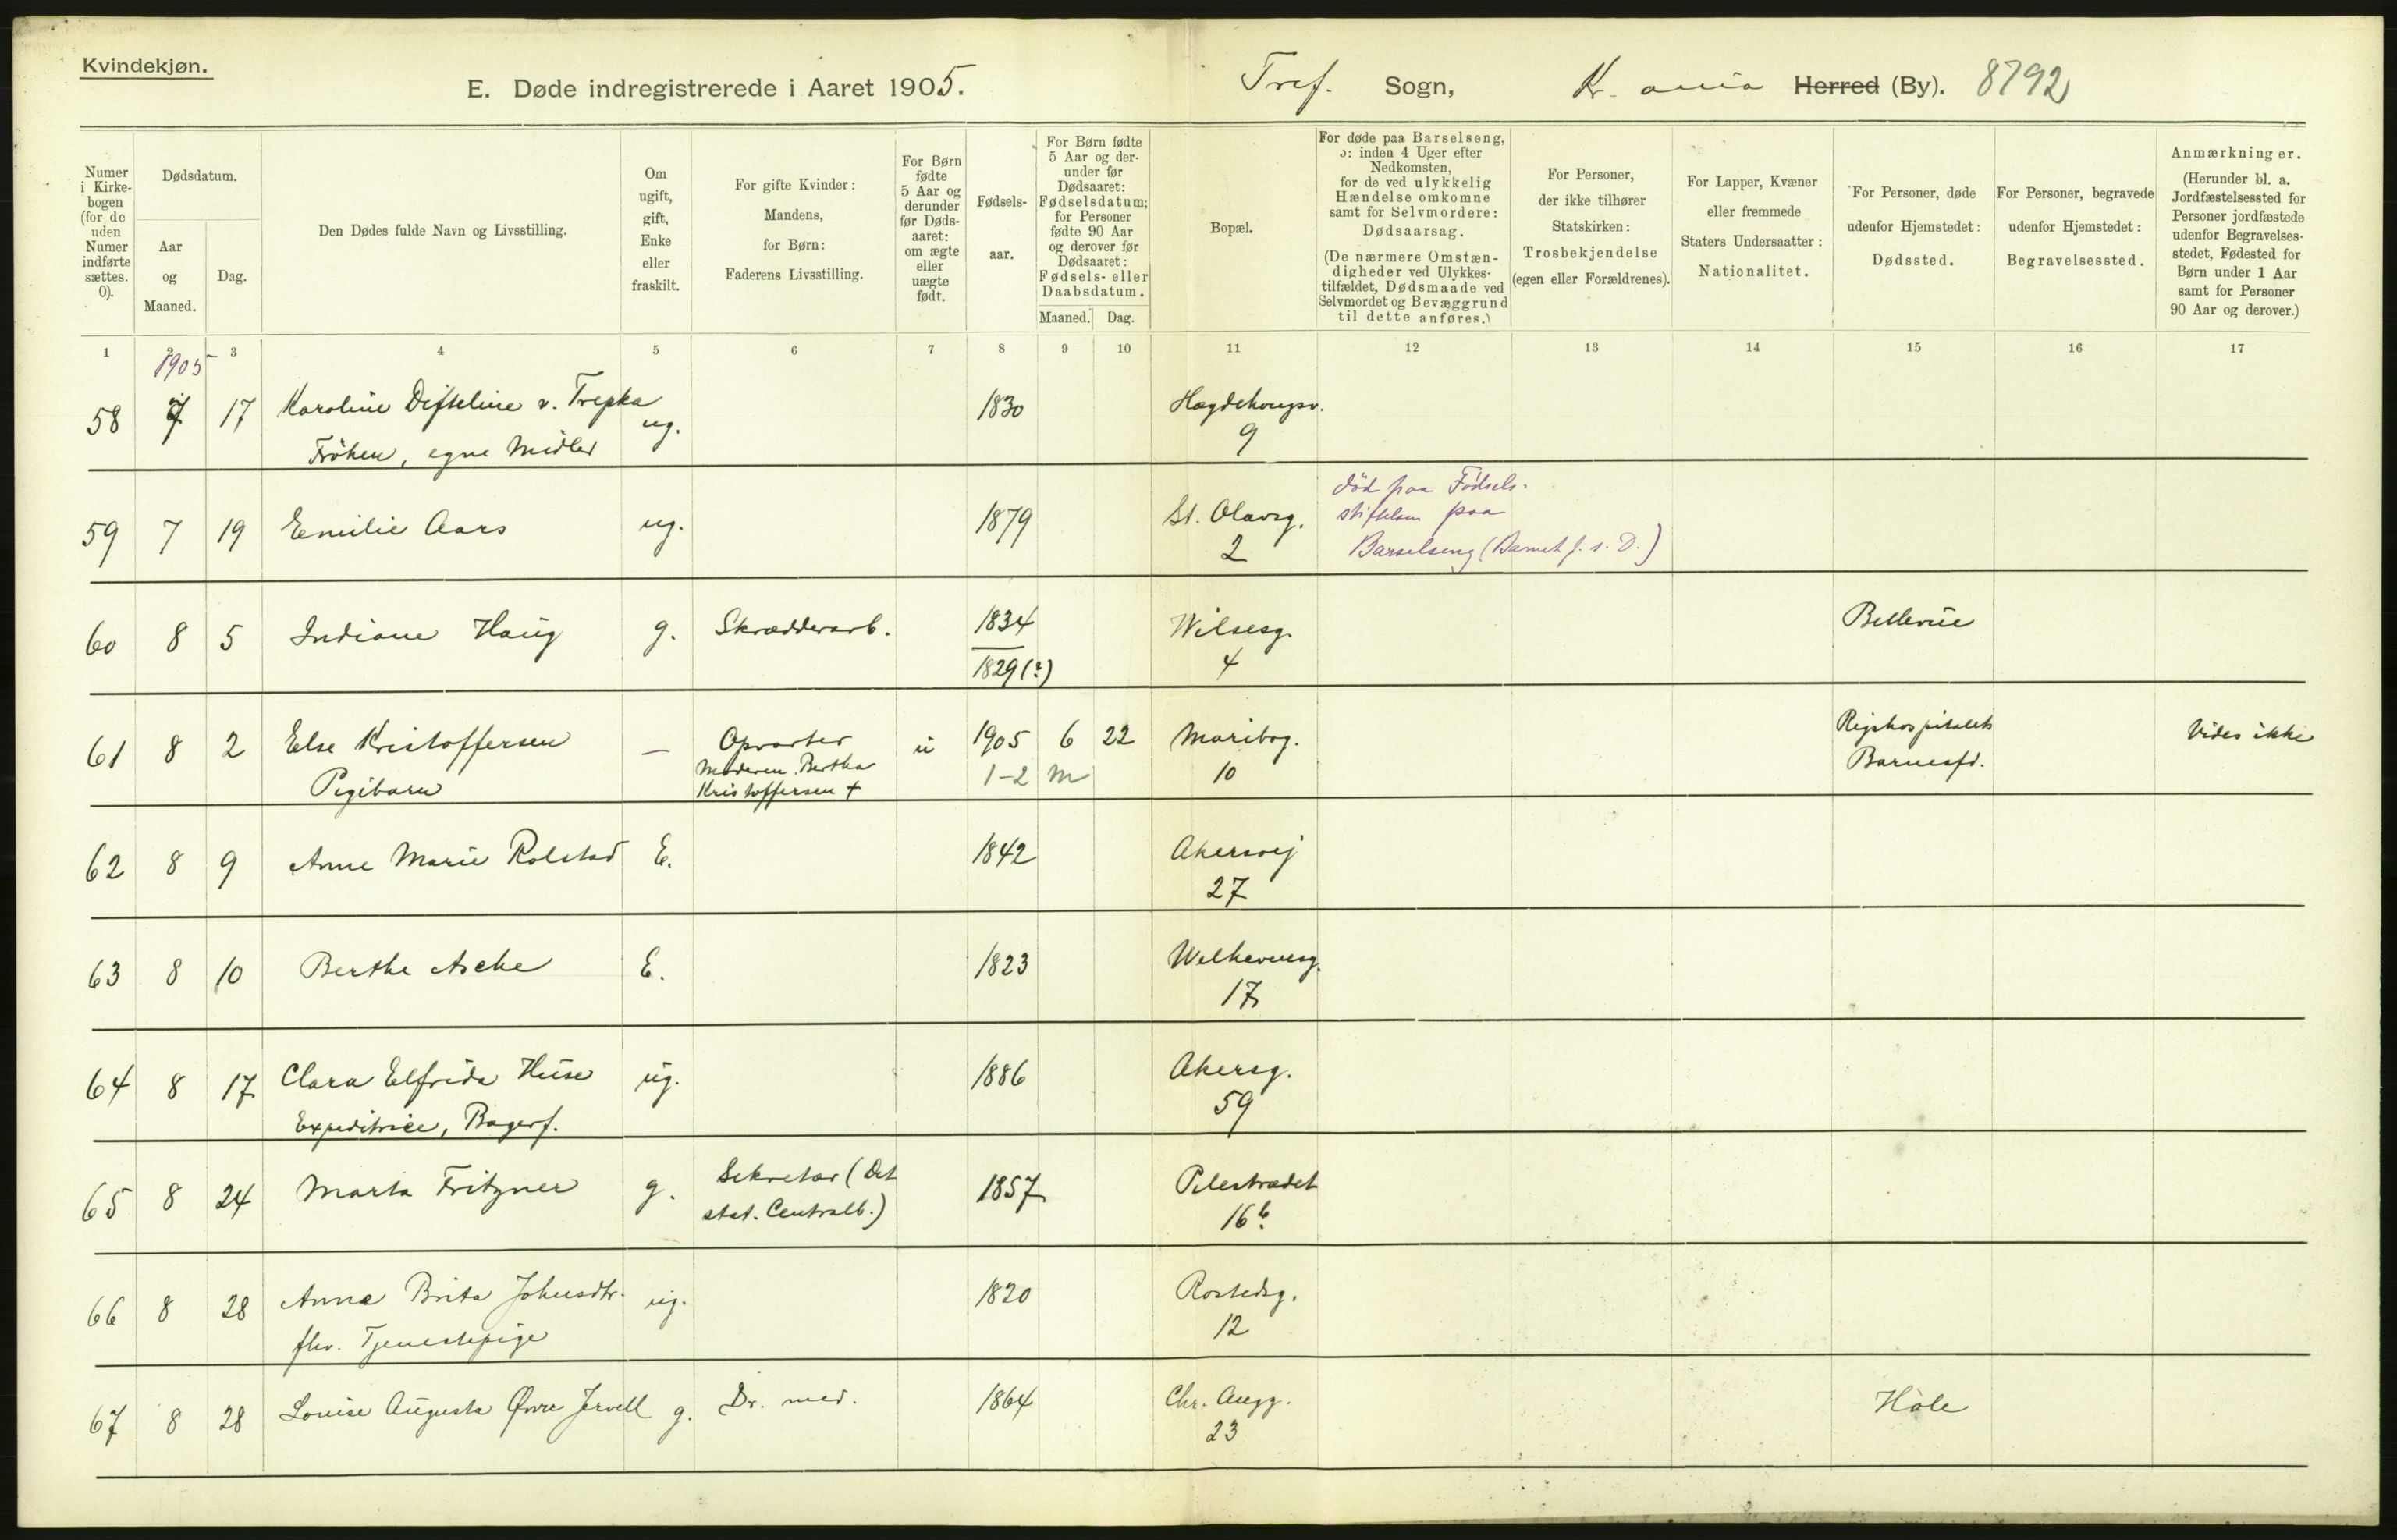 Kvindekjøn.
E. Døde indregistrerede i Aaret 1905.
Tref. Sogn, Kr. ania Herred (By). 8792
Numer
i Kirke-
bogen
(for de
uden
Numer
indførte
sættes.
0).
Dødsdatum.
Aar
og
Maaned.
Dag.
Den Dødes fulde Navn og Livsstilling.
Om
ugift,
gift,
Enke
eller
fraskilt.
For gifte Kvinder:
Mandens,
for Børn:
Faderens Livsstilling.
For Børn
fødte
5 Aar og
derunder
før Døds-
aaret:
om ægte
eller
uægte
født.
Fødsels-
aar.
For Børn fødte
5 Aar og der-
under før
Dødsaaret:
Fødselsdatum;
for Personer
fødte 90 Aar
og derover før
Dødsaaret:
Fødsels- eller
Daabsdatum.
Maaned. Dag.
Bopæl.
For døde paa Barselseng,
ɔ: inden 4 Uger efter
Nedkomsten,
for de ved ulykkelig
Hændelse omkomne
samt for Selvmordere:
Dødsaarsag.
(De nærmere Omstæn-
digheder ved Ulykkes-
tilfældet, Dødsmaade ved
Selvmordet og Bevæggrund
til dette anføres.)
For Personer,
der ikke tilhører
Statskirken:
Trosbekjendelse
(egen eller Forældrenes).
For Lapper, Kvæner
eller fremmede
Staters Undersaatter:
Nationalitet.
For Personer, døde
udenfor Hjemstedet:
Dødssted.
For Personer, begravede
udenfor Hjemstedet:
Begravelsessted.
Anmærkninger.
(Herunder bl. a.
Jordfæstelsessted for
Personer jordfæstede
udenfor Begravelses-
stedet, Fødested for
Børn under 1 Aar
samt for Personer
90 Aar og derover.)
1 2 3 4 5 6 7 8 9 10 11 12 13 14 15 16 17
1905
58 7 17 Karoline v. Trepka ug. 1830 Hægdehougsv.
Frøken, egne Midler 9
59 7 19 Emilie Aars ug. 1879 St. Olavsg. død paa Fødsels-
2 stiftelsen paa
Barselseng (Barnet f. s. D.)
60 8 5 Indiane Haug g. Skrædderarb. 1834 Wilsesg. Bellevue
1829 (?) 4
61 8 2 Else Kristoffersen — Opvarter u 1905 6 22 Maribog. Rigshospitalets Vides ikke
Pigibarn Moderen Bertha 1-2 m 10 Barneafd.
Kristoffersen +
62 8 9 Anne Marie Rolstad E. 1842 Akersvej
27
63 8 10 Berthe Aske E. 1823 Welhavensg.
17
64 8 17 Clara Elfrida Huse ug. 1886 Akersg.
Expeditrice, Bagerf. 59
65 8 24 Marta Fritzner g. Sekretær (Det 1857 Pilestrædet
stat. Centralb.) 16b.
66 8 28 Anne Brita Johnsdtr. ug. 1820 Rostedsg.
fhv. Tjenestepige 12
67 8 28 Louise Augusta Øvre Jervell g. Dr. med. 1864 Chr. Augg. Hole
23